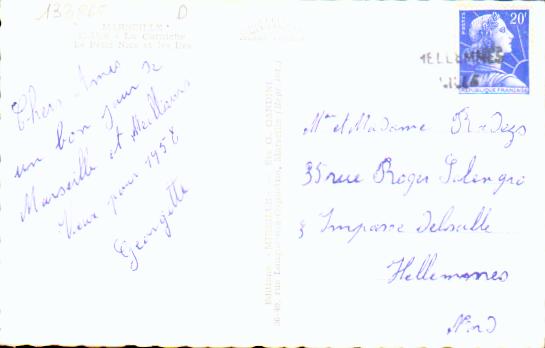 133865
D
MARSEILLE
La Corniche
Le Petit Nice et les Iles
Chers Amis
un bon jour de
Marseille et Meilleurs
Vœux pour 1958
Georgette
Editions
MARSEILLE
POSTES
20F
REPUBLIQUE FRANÇAISE
HELLEMMES
LILLE
Mr et Madame
35 rue Roger Salengro
3 Impasse Delsalle
Hellemmes
Nord